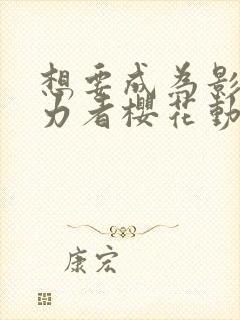 想要成为影
力者樱花動
康宏